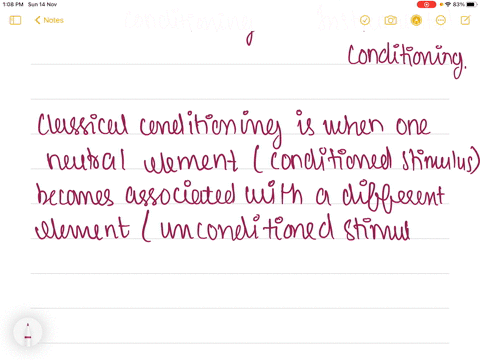 1:08 PM Sun 14 Nov
83%
Notes
conditioning
conditioning.
Classical conditioning is when one
neutral element (conditioned stimulus)
becomes associated with a different
element (unconditioned stimul